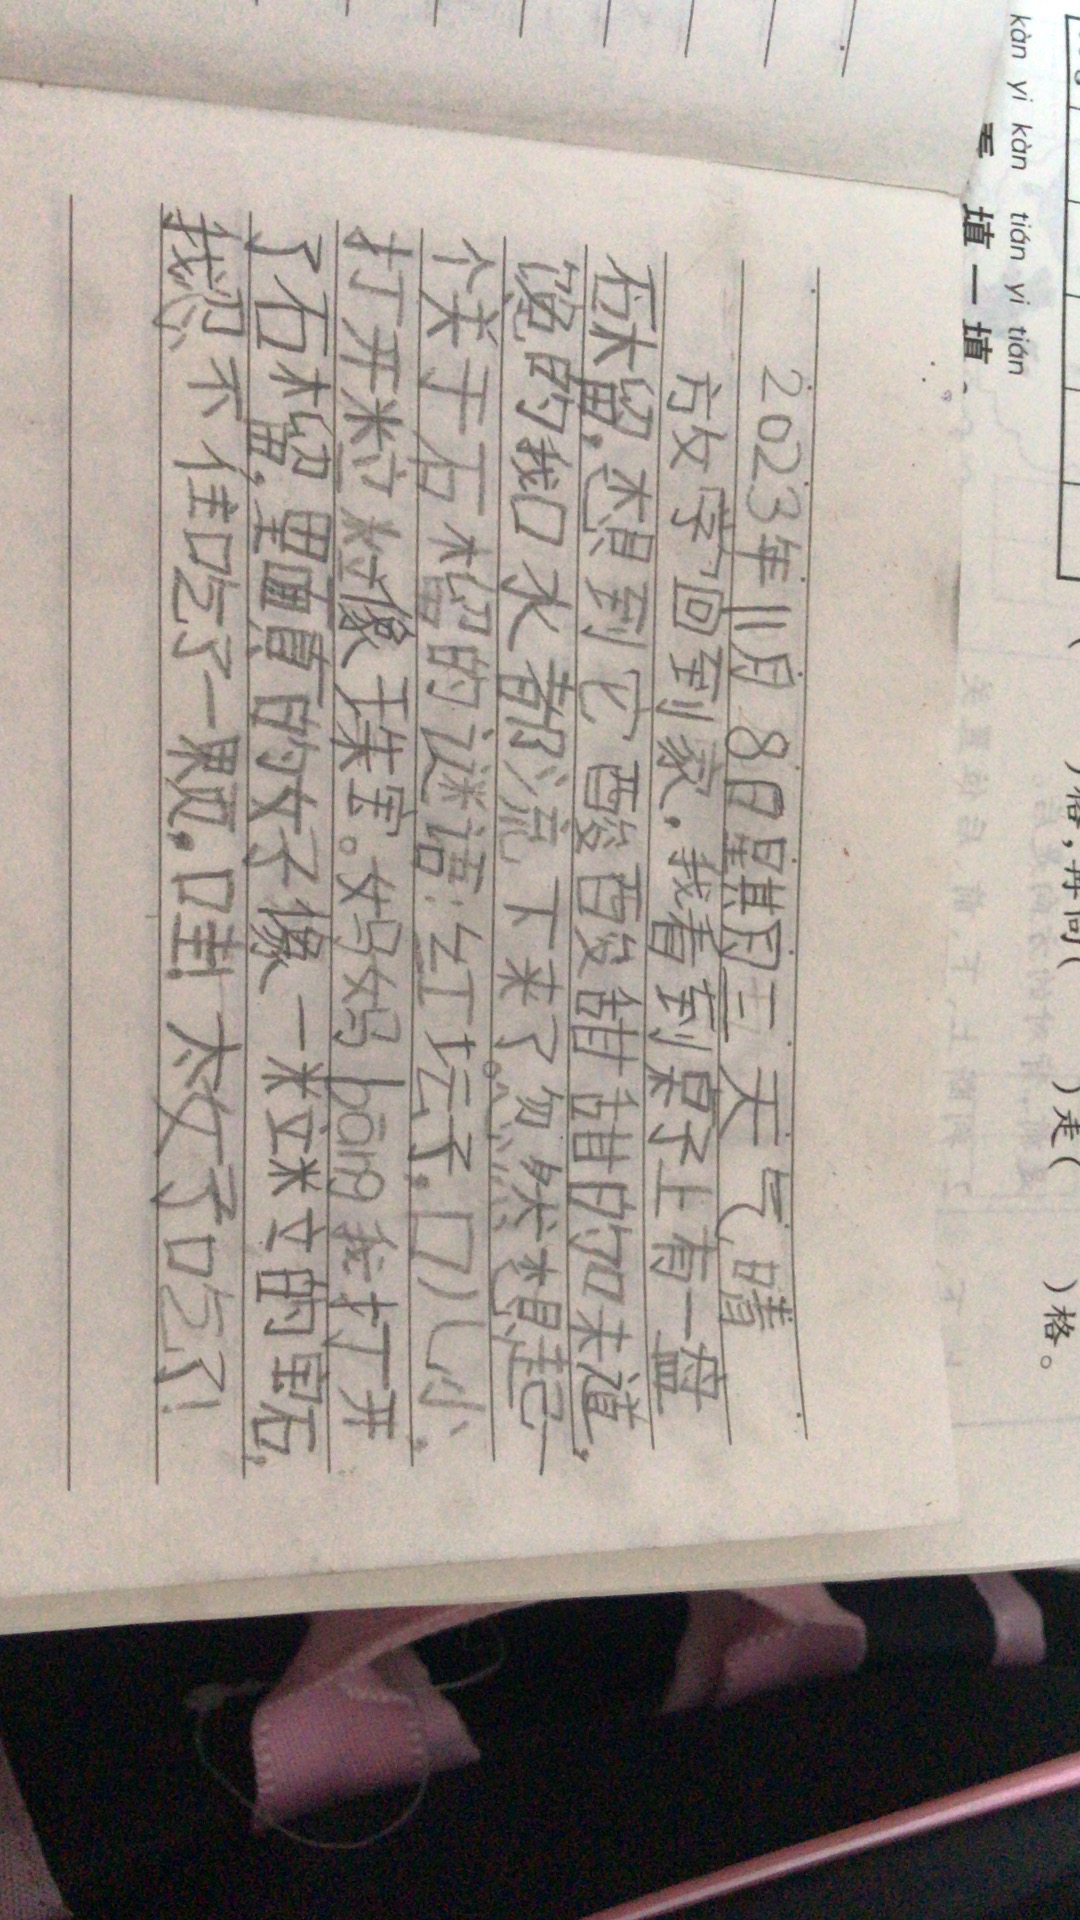 kàn yi kàn tián yi tián
看 填一填
)格,再向( )走( )格。
2023年11月8日星期三 天气 晴
放学回到家,我看到桌子上有一盘
石榴,想到它酸酸甜甜的味道,
馋的我口水都流下来了。忽然想起
个关于石榴的谜语:红坛子,口儿小,
打开粒粒像珠宝。妈妈bāng我打开
了石榴,里面真的好像一粒粒的宝石,
我忍不住吃了一颗,哇!太好了吃了!